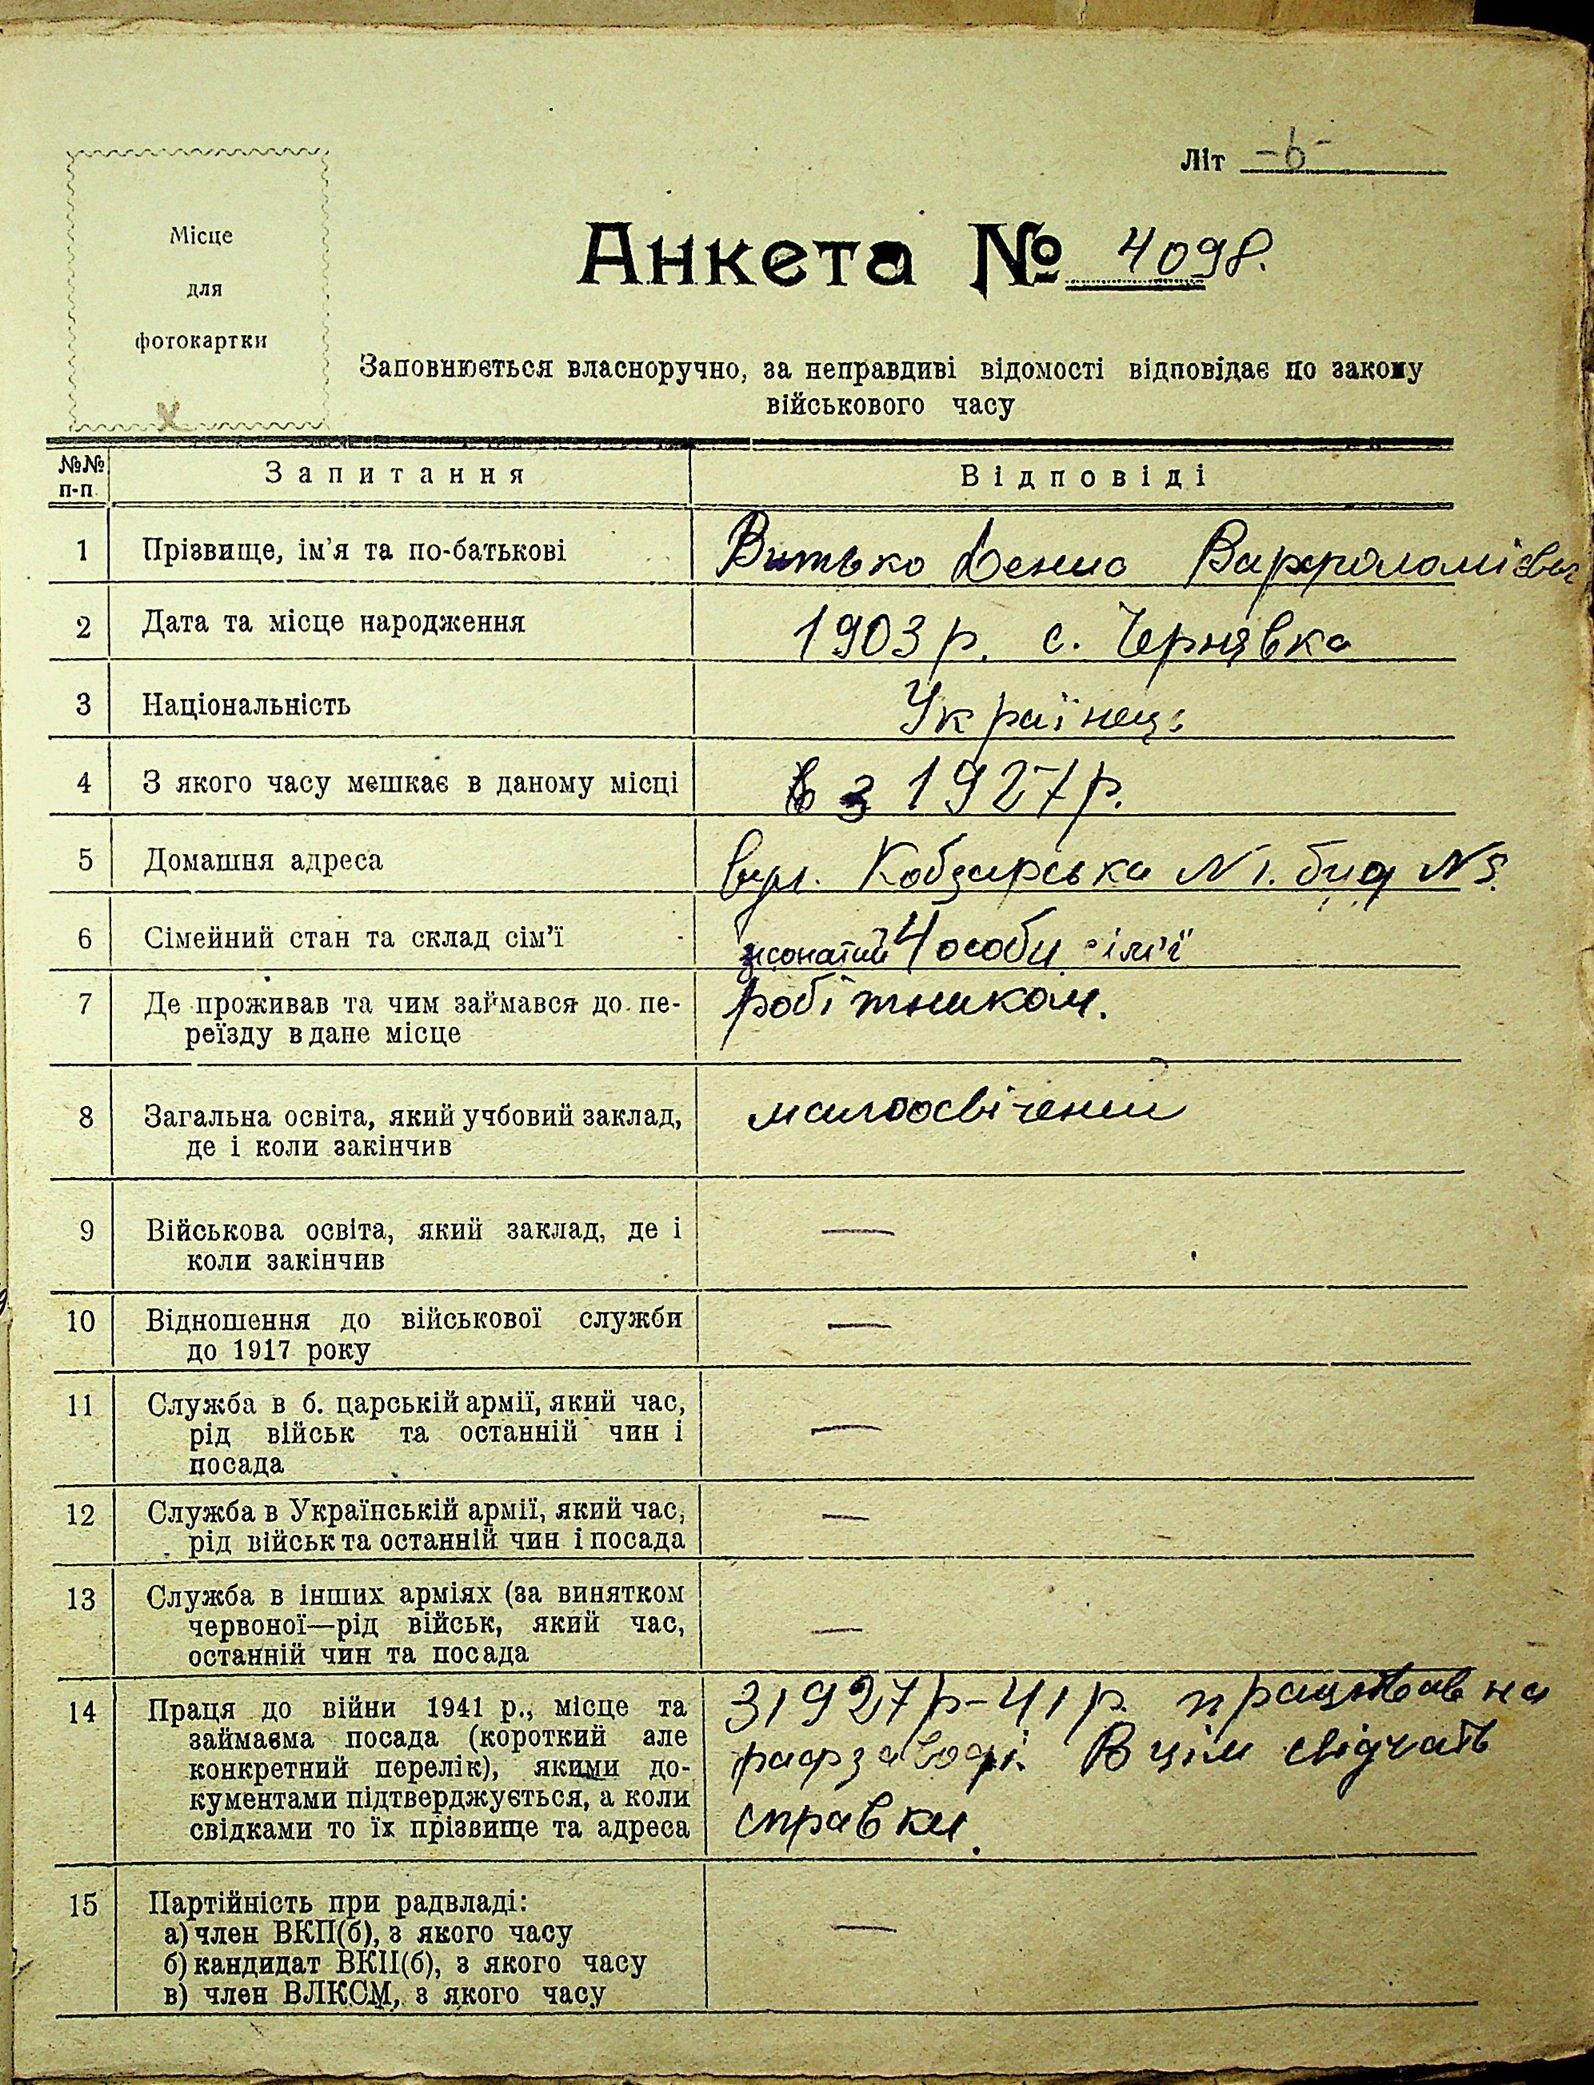 Літ -в-
Місце
для
фотокартки
Анкета № 4098.
Заповнюється власноручно, за неправдиві відомості відповідає по закону
військового часу
№№
п-п
Запитання
Відповіді
1 Прізвище, ім'я та по-батькові Витько Денис Варфоломієвич
2 Дата та місце народження 1903 р. с. Чернявка
3 Національність Українець
4 З якого часу мешкає в даному місці з 1927 р.
5 Домашня адреса вул. Кобзарська N 1. буд N 3.
6 Сімейний стан та склад сім'ї жонатий 4 особи сім'ї
7 Де проживав та чим займався до пе- робітником.
реїзду в дане місце
8 Загальна освіта, який учбовий заклад, малоосвічений
де і коли закінчив
9 Військова освіта, який заклад, де і —
коли закінчив
10 Відношення до військової служби —
до 1917 року
11 Служба в б. царській армії, який час,
рід військ та останній чин і —
посада
12 Служба в Українській армії, який час, —
рід військ та останній чин і посада
13 Служба в інших арміях (за винятком
червоної—рід військ, який час, —
останній чин та посада
14 Праця до війни 1941 р., місце та З 1927 р - 41 р. працював на
займаєма посада (короткий але
конкретний перелік), якими до- рафзаводі. В цім свідчать
кументами підтверджується, а коли
свідками то їх прізвище та адреса справки.
15 Партійність при радвладі:
а) член ВКП(б), з якого часу —
б) кандидат ВКП(б), з якого часу
в) член ВЛКСМ, з якого часу